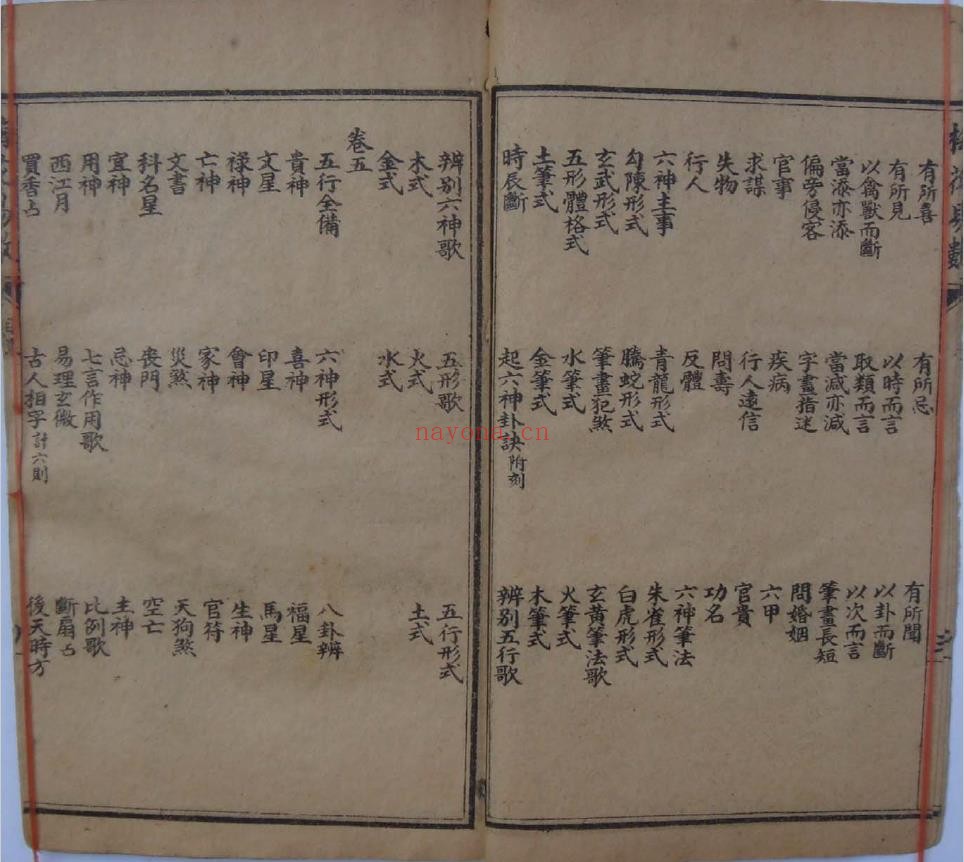 有所喜 有所忌 有所聞
有所見 以時而言 以卦而斷
以禽獸而斷 取類而言 以次而言
當添亦添 當減亦減 筆畫長短
偏旁侵客 字畫指迷 問婚姻
官事 疾病 六甲
求謀 行人遠信 官貴
失物 問壽 功名
行人 反體 六神筆法
六神主事 青龍形式 朱雀形式
勾陳形式 騰蛇形式 白虎形式
玄武形式 筆畫犯煞 玄黃筆法歌
五形體格式 水筆式 火筆式
土筆式 金筆式 木筆式
時辰斷 起六神卦訣附刻 辨別五行歌
辨別六神歌 五形歌 五行形式
木式 火式 土式
金式 水式
卷五
五行全備 六神形式 八卦辨
貴神 喜神 福星
文星 印星 馬星
祿神 會神 生神
亡神 家神 官符
文書 災煞 天狗煞
科名星 喪門 空亡
宜神 忌神 主神
用神 七言作用歌 比例歌
西江月 易理玄微 斷扇占
買香占 古人相字計六則 後天時方
nayona.cn